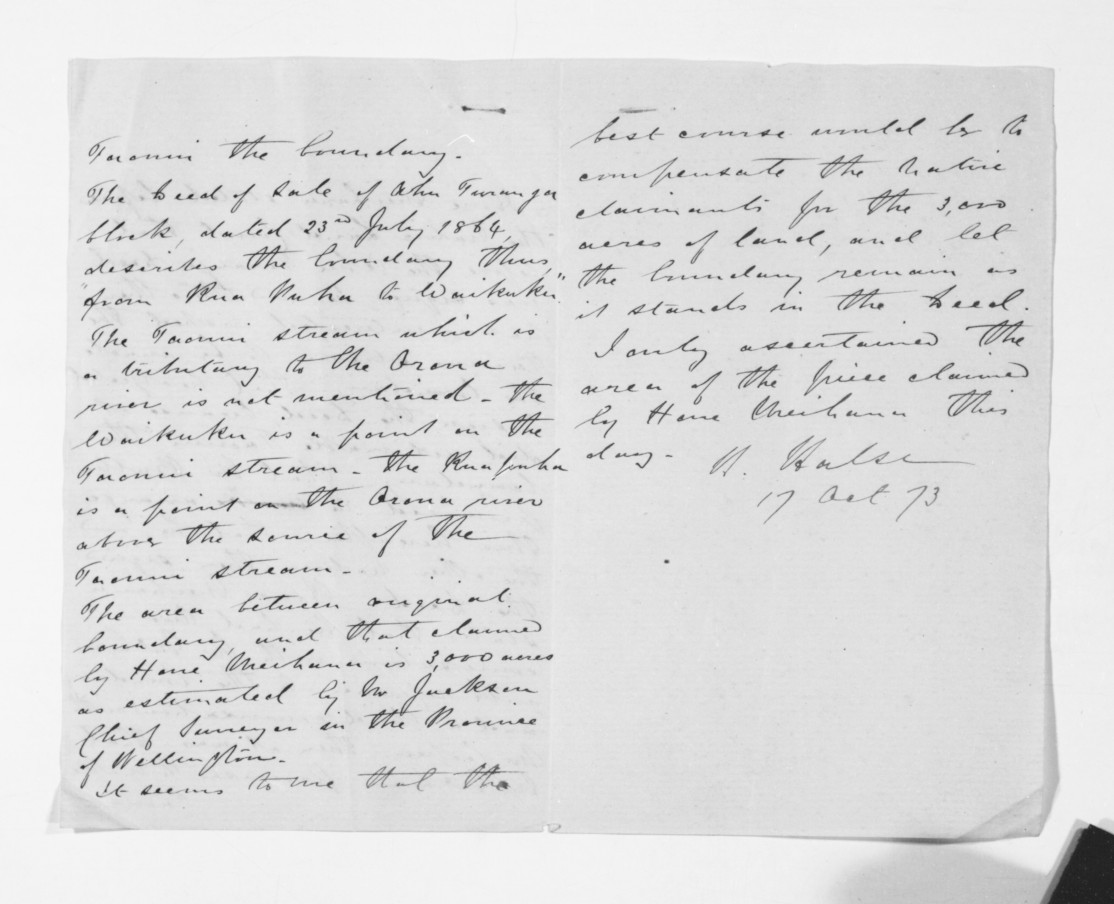 Taonui the boundary.
The Deed of Sale of Ahu Turanga
block, dated 23rd July 1864,
describes the boundary thus,
"from Rua Puha to Waikuku".
The Taonui stream which is
a tributary to the Oroua
river is not mentioned - the
Waikuku is a point on the
Taonui stream - the Ruapuha
is a point on the Oroua river
above the source of the
Taonui stream -
The area between original
boundary, and that claimed
by Hare Meihana is 3,000 acres
as estimated by Mr Jackson
Chief Surveyor in the Province
of Wellington -
It seems to me that the
best course would be to
compensate the native
claimants for the 3,000
acres of land, and let
the boundary remain as
it stands in the Deed.
I only ascertained the
area of the piece claimed
by Hare Meihana this
day -
H. Halse
17 Oct 73